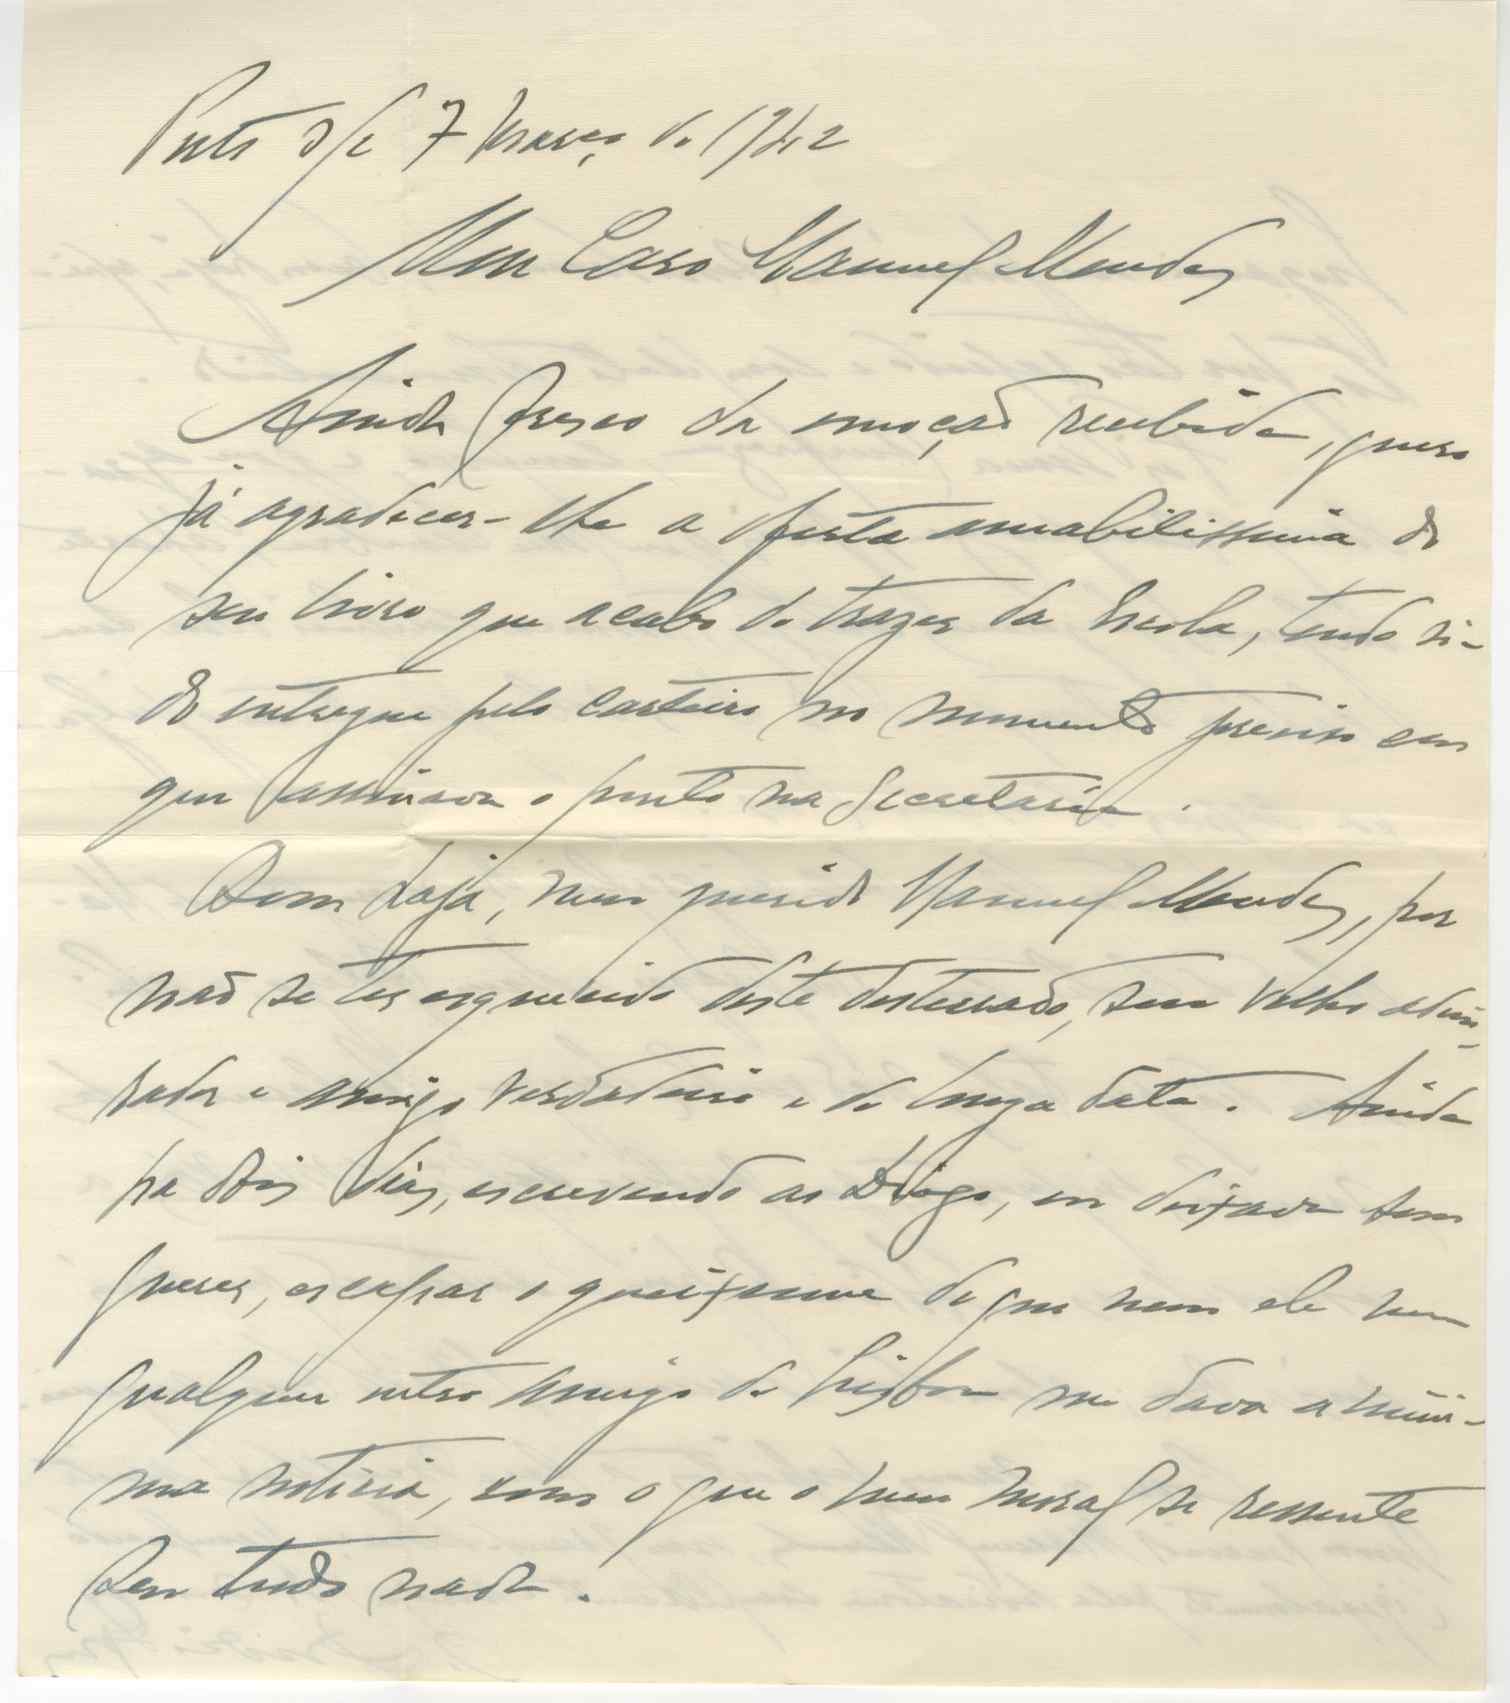 Porto s/c 7 Março de 1942
Meu Caro Manuel Mendes
Ainda fresco da emoção recebida, quero
já agradecer-lhe a oferta amabilissima do
seu livro que acabo de trazer da Escola, tendo si-
do entregue pelo carteiro no momento preciso em
que assinava o ponto na Secretaria.
Bem haja, meu querido Manuel Mendes, por
não se ter esquecido deste desterrado, seu velho admi-
rador e amigo verdadeiro e de longa data. Ainda
ha dois dias, escrevendo ao Diogo, eu deixava sem
querer, escapar o queixume de que nem ele nem
qualquer outro amigo de Lisboa me dava a mini-
ma noticia, com o que o meu moral se ressente
seu tudo nada.